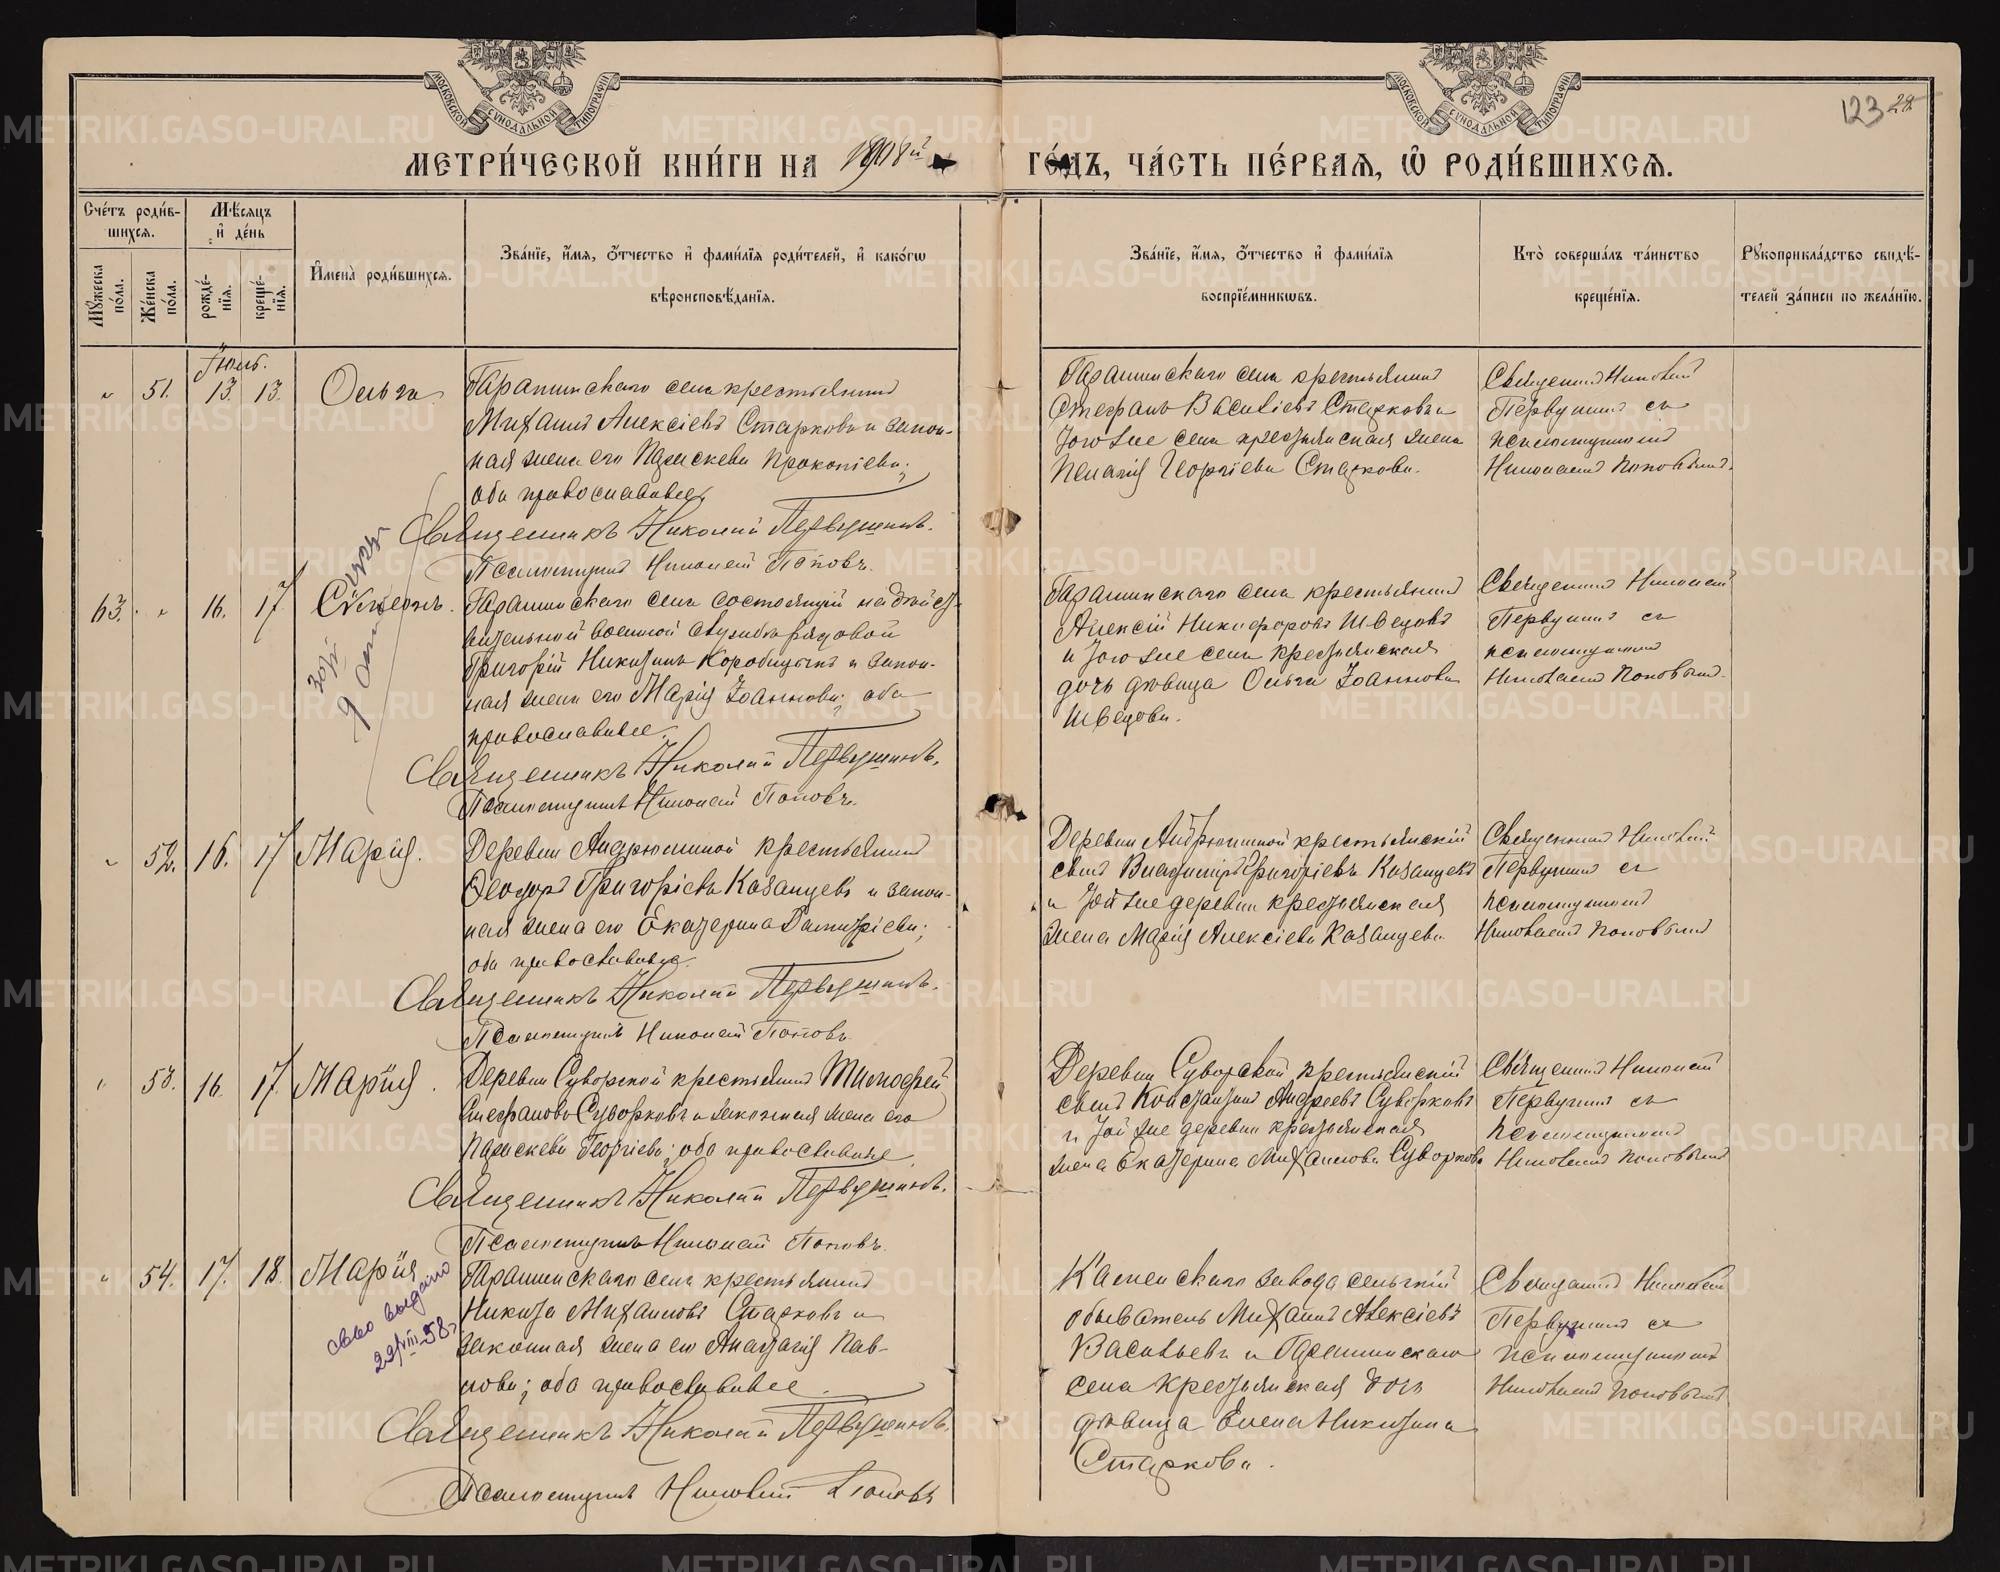 МОСКОВСКОЙ СУНОДАЛЬНОЙ ТИПОГРАФІИ
МОСКОВСКОЙ СУНОДАЛЬНОЙ ТИПОГРАФІИ
123 28.
МЕТРИ́ЧЕСКОЙ КНИ́ГИ НА 1908й ГО́ДЪ, ЧА́СТЬ ПЕ́РВАѦ, Ѡ҆ РОДИ́ВШИХСѦ.
Сче́тъ роди́в-
шихсѧ.
Мѣ́сѧцъ
и҆ де́нь
Мꙋ́жеска по́ла.
Же́нска по́ла.
рожде́-
нїѧ.
креще́-
нїѧ.
И҆мена̀ роди́вшихсѧ.
Зва́нїе, и҆́мѧ, ѻ҆́тчество и҆ фами́лїѧ роди́телей, и҆ како́гѡ
вѣроисповѣ́данїѧ.
Зва́нїе, и҆́мѧ, ѻ҆́тчество и҆ фами́лїѧ
воспрїе́мникѡвъ.
Кто̀ соверша́лъ та́инство
креще́нїѧ.
Рꙋкоприкла́дство свидѣ́-
телей за́писи по жела́нїю.
Іюль.
" 51. 13. 13. Ольга
Гарашинскаго села крестьянинъ
Михаилъ Алексіевъ Старковъ и закон-
ная жена его Параскева Прокопіева;
оба православные.
Священникъ Николай Первушинъ.
Псаломщикъ Николай Поповъ.
Гарашинскаго села крестьянинъ
Стефанъ Василіевъ Старковъ и
того же села крестьянская жена
Пелагія Георгіева Старкова.
Священникъ Николай
Первушинъ съ
псаломщикомъ
Николаемъ Поповымъ.
63. " 16. 17. Сѵмеонъ.
Гарашинскаго села состоящій на дѣйст-
вительной военной службѣ рядовой
Григорій Никитинъ Коробицынъ и закон-
ная жена его Марія Іоаннова; оба
православные.
Священникъ Николай Первушинъ.
Псаломщикъ Николай Поповъ.
Гарашинскаго села крестьянинъ
Алексій Никифоровъ Шведовъ
и того же села крестьянская
дочь дѣвица Ольга Іоаннова
Шведова.
Священникъ Николай
Первушинъ съ
псаломщикомъ
Николаемъ Поповымъ.
" 52. 16. 17. Марія.
Деревни Андрюшиной крестьянинъ
Ѳеодоръ Григоріевъ Казанцевъ и закон-
ная жена его Екатерина Димитріева;
оба православные.
Священникъ Николай Первушинъ.
Псаломщикъ Николай Поповъ.
Деревни Андрюшиной крестьянскій
сынъ Владиміръ Григоріевъ Казанцевъ
и той же деревни крестьянская
жена Марія Алексіева Казанцева.
Священникъ Николай
Первушинъ съ
псаломщикомъ
Николаемъ Поповымъ
" 53. 16. 17. Марія.
Деревни Суворской крестьянинъ Тимофей
Стефановъ Суворковъ и законная жена его
Параскева Георгіева; оба православные.
Священникъ Николай Первушинъ.
Псаломщикъ Николай Поповъ.
Деревни Суворской крестьянскій
сынъ Константинъ Андреевъ Суворковъ
и той же деревни крестьянская
жена Екатерина Михаилова Суворкова
Священникъ Николай
Первушинъ съ
псаломщикомъ
Николаемъ Поповымъ
" 54. 17. 18. Марія
св-во выдано
22/VIII-58 г
Гарашинскаго села крестьянинъ
Никита Михаиловъ Старковъ и
законная жена его Анастасія Пав-
лова; оба православные.
Священникъ Николай Первушинъ.
Псаломщикъ Николай Поповъ
Каменскаго завода сельскій
обыватель Михаилъ Алексіевъ
Васильевъ и Гарашинскаго
села крестьянская дочь
дѣвица Елена Никитина
Старкова.
Священникъ Николай
Первушинъ съ
псаломщикомъ
Николаемъ Поповымъ
METRIKI.GASO-URAL.RU